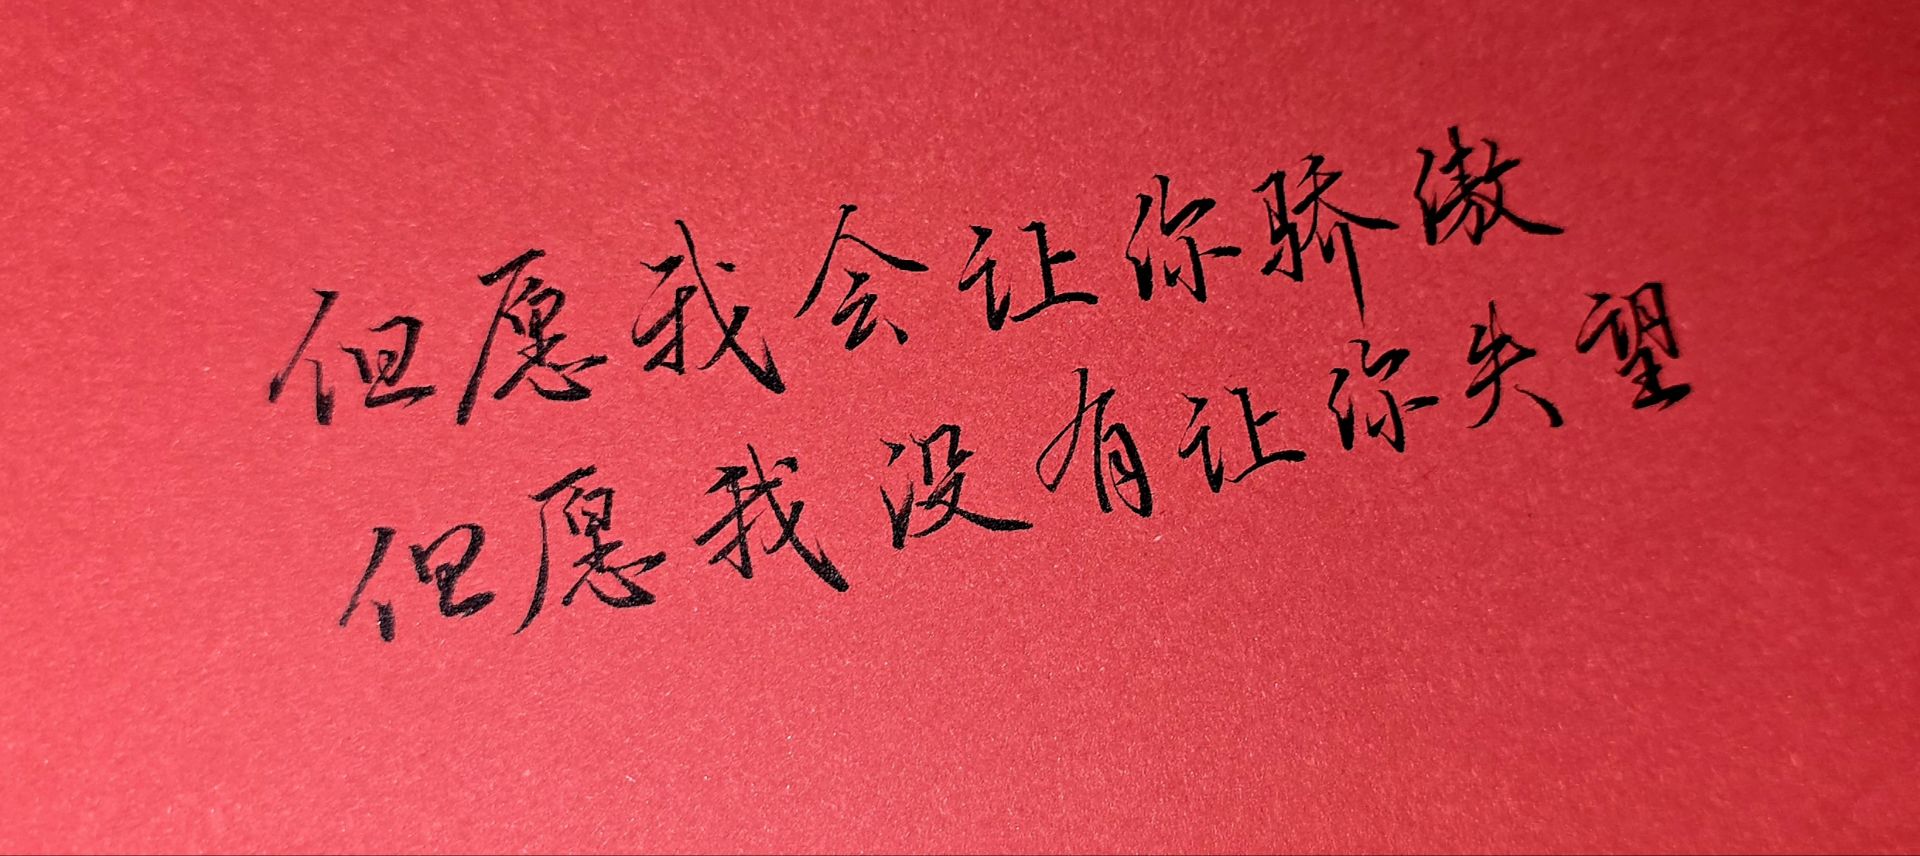 但愿我会让你骄傲
但愿我没有让你失望